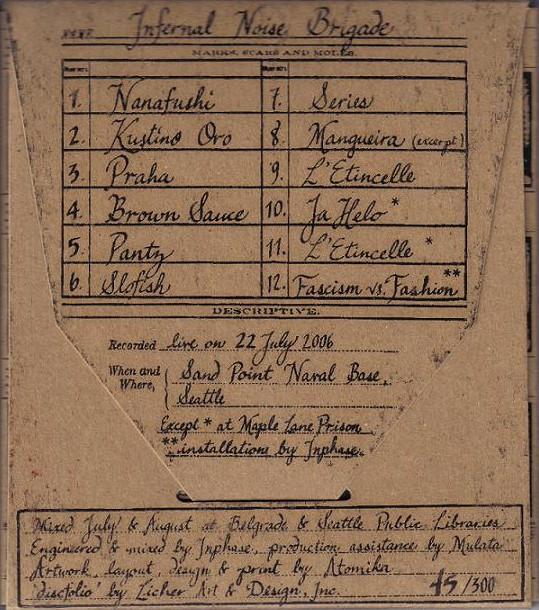 NAME Infernal Noise Brigade
MARKS, SCARS AND MOLES.
1. Nanafushi
2. Kustino Oro
3. Praha
4. Brown Sauce
5. Panty
6. Slofish
7. Series
8. Mangueira (excerpt)
9. L'Etincelle
10. Ja Helo *
11. L'Etincelle *
12. Fascism vs. Fashion **
DESCRIPTIVE.
Recorded live on 22 July 2006
When and Where, { Sand Point Naval Base,
Seattle
Except * at Maple Lane Prison
** installations by Inphase.
Mixed July & August at Belgrade & Seattle Public Libraries
Engineered & mixed by Inphase, production assistance by Mulata
Artwork, layout, design & print by Atomika
discfolio by Zicher Art & Design, Inc. 45/300